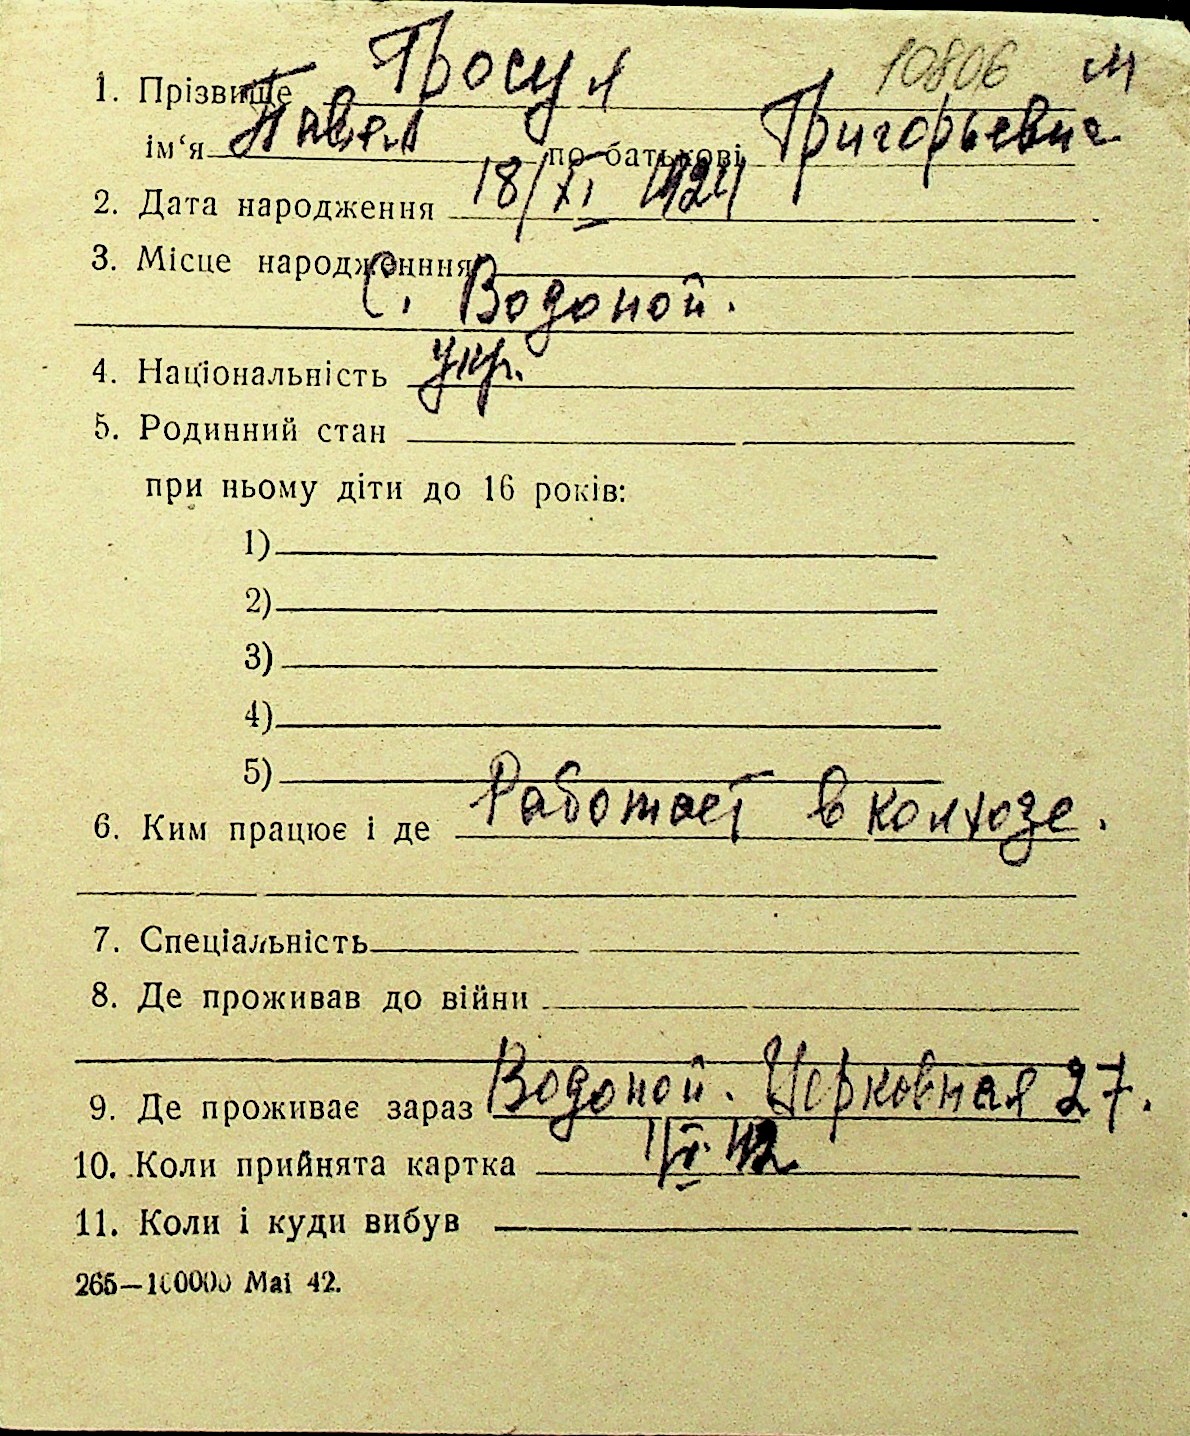 10806 м
1. Прізвище Просул
ім‘я Павел по батькові Григорьевич
2. Дата народження 18/XI 1924
3. Місце народженння
С. Водоной.
4. Національність укр.
5. Родинний стан
при ньому діти до 16 років:
1)
2)
3)
4)
5)
6. Ким працює і де Работает в колхозе.
7. Спеціальність
8. Де проживав до війни
9. Де проживає зараз Водоной. Церковная 27.
10. Коли прийнята картка 42
11. Коли і куди вибув
265—100000 Mai 42.